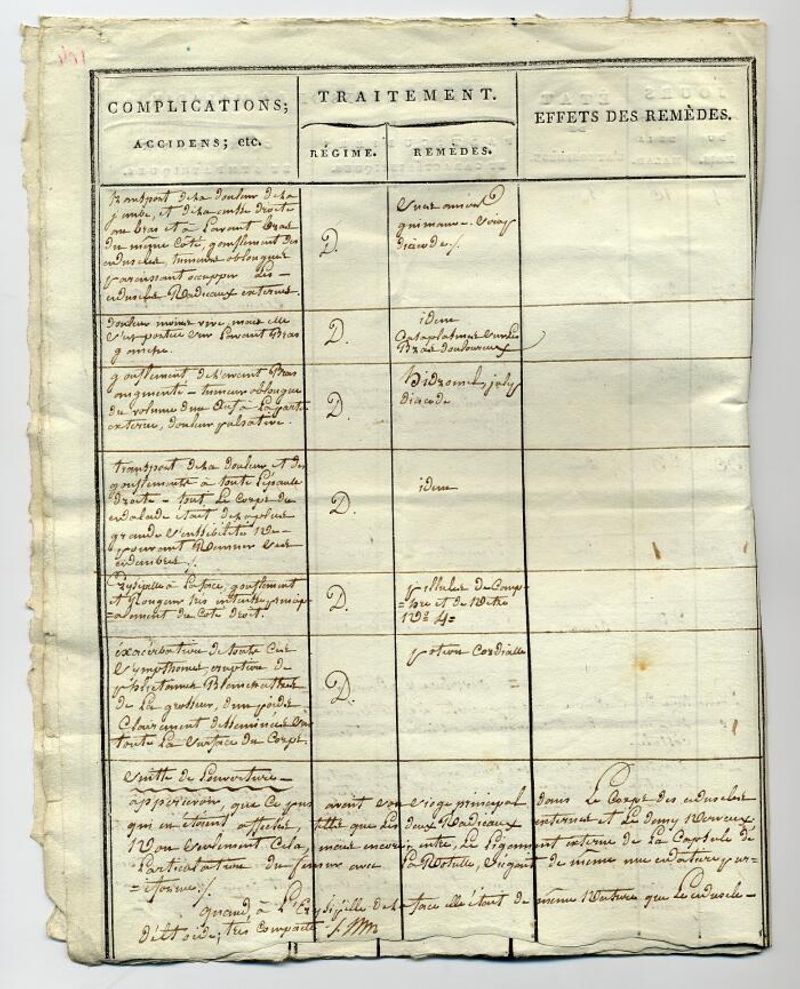 COMPLICATIONS;
ACCIDENS; etc.
TRAITEMENT.
RÉGIME.
REMÈDES.
EFFETS DES REMÈDES.
transport de la douleur de la
jambe, et de la cuisse droite
au bras et à L'avant bras
du même côté, gonflement des
muscles, tumeurs oblongues
paroissant occupper les
muscles Radieaux externes.
D.
guimauve
diacode /.
douleur moins vive, mais elle
s'est portée sur L'avant Bras
gauche.
D.
idem
Cataplasmes sur les
Bras douloureux
gonflement de L'avant Bras
augmenté – tumeur oblongue
du volume d'un œuf à La partie
externe, douleur pulsative.
D.
hidromel, julep
diacode
transport de La douleur et du
gonflement à toute L'épaule
droite – tout Le Corps du
malade étant de la plus
grande sensibilité ne
pouvant Remuer ses
membres /.
D.
idem
Erysipelle à La face, gonflement
et Rougeur très intense, princip
=alement du Côté droit.
D.
pillules de Camp-
=hre et de Nitre
Nos 4=
exacerbation de touts Ces
symphomes, eruption de
phlictaines Blanchattres
de La grosseur, d'un poids
Clairement desseminées sur
toute La surface du Corps.
D.
potion Cordialle
Suitte de L'ouverture –
apperçevoir, que Ce pus avoit son siege principal dans Le Corps des muscles
qui en étoient affectés, tels que Les deux Radieaux internes et Le demy Nerveux
Non seulement Cela, mais encore, entre, Le Ligament interne de La Capsule de
L'articulation du femur avec La Rotulle, siegant de même une matiere pur=
=iforme /.
quand, à L'Erysipelle de La face elle étoit de même Nature que Le muscle
deltoide; très Compacte /.